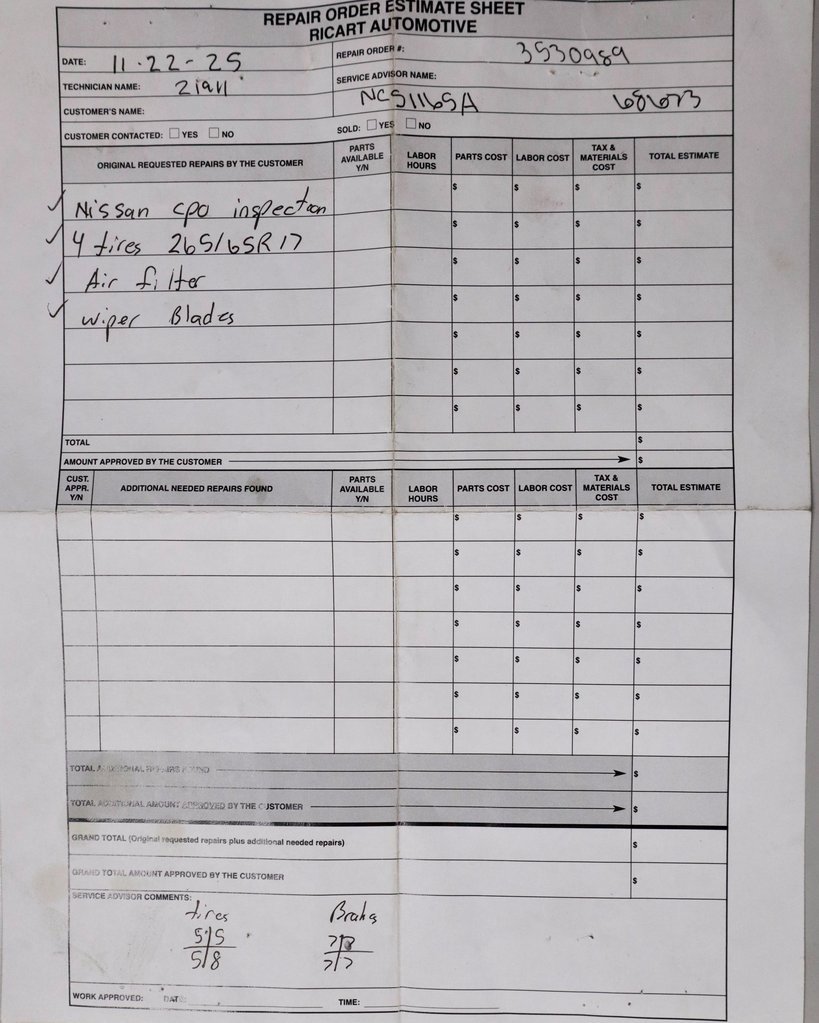 REPAIR ORDER ESTIMATE SHEET
RICART AUTOMOTIVE
DATE: 11-22-25
REPAIR ORDER #: 3530989
TECHNICIAN NAME:
SERVICE ADVISOR NAME:
NCS1165A 68673
CUSTOMER'S NAME:
CUSTOMER CONTACTED: ☐ YES ☐ NO
SOLD: ☐ YES ☐ NO
ORIGINAL REQUESTED REPAIRS BY THE CUSTOMER PARTS AVAILABLE Y/N LABOR HOURS PARTS COST LABOR COST TAX & MATERIALS COST TOTAL ESTIMATE
✓ Nissan cpo inspection $ $ $ $
✓ 4 tires 265/65R17 $ $ $ $
✓ Air filter $ $ $ $
✓ wiper Blades $ $ $ $
$ $ $ $
$ $ $ $
$ $ $ $
TOTAL $
AMOUNT APPROVED BY THE CUSTOMER $
CUST. APPR. Y/N ADDITIONAL NEEDED REPAIRS FOUND PARTS AVAILABLE Y/N LABOR HOURS PARTS COST LABOR COST TAX & MATERIALS COST TOTAL ESTIMATE
$ $ $ $
$ $ $ $
$ $ $ $
$ $ $ $
$ $ $ $
$ $ $ $
$ $ $ $
TOTAL ADDITIONAL REPAIRS FOUND $
TOTAL ADDITIONAL AMOUNT APPROVED BY THE CUSTOMER $
GRAND TOTAL (Original requested repairs plus additional needed repairs) $
GRAND TOTAL AMOUNT APPROVED BY THE CUSTOMER $
SERVICE ADVISOR COMMENTS:
tires Brakes
5|5 7|7
5|8 7|7
WORK APPROVED: DATE: TIME: